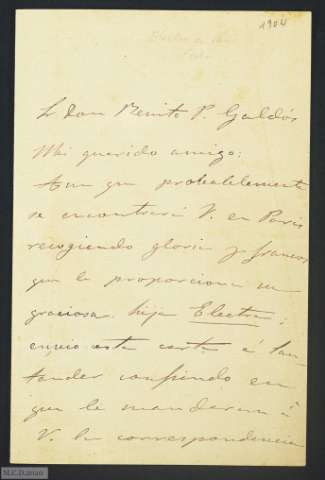 1904
Sr Don Benito P. Galdós
Mi querido amigo:
Aun que probablemente
se encontrará V. en Paris
recogiendo gloria y francos
que le proporciona su
graciosa hija Electra;
envio esta carta á San-
tander confiando en
que le mandaran á
V. la correspondencia
M.C.D. 2018